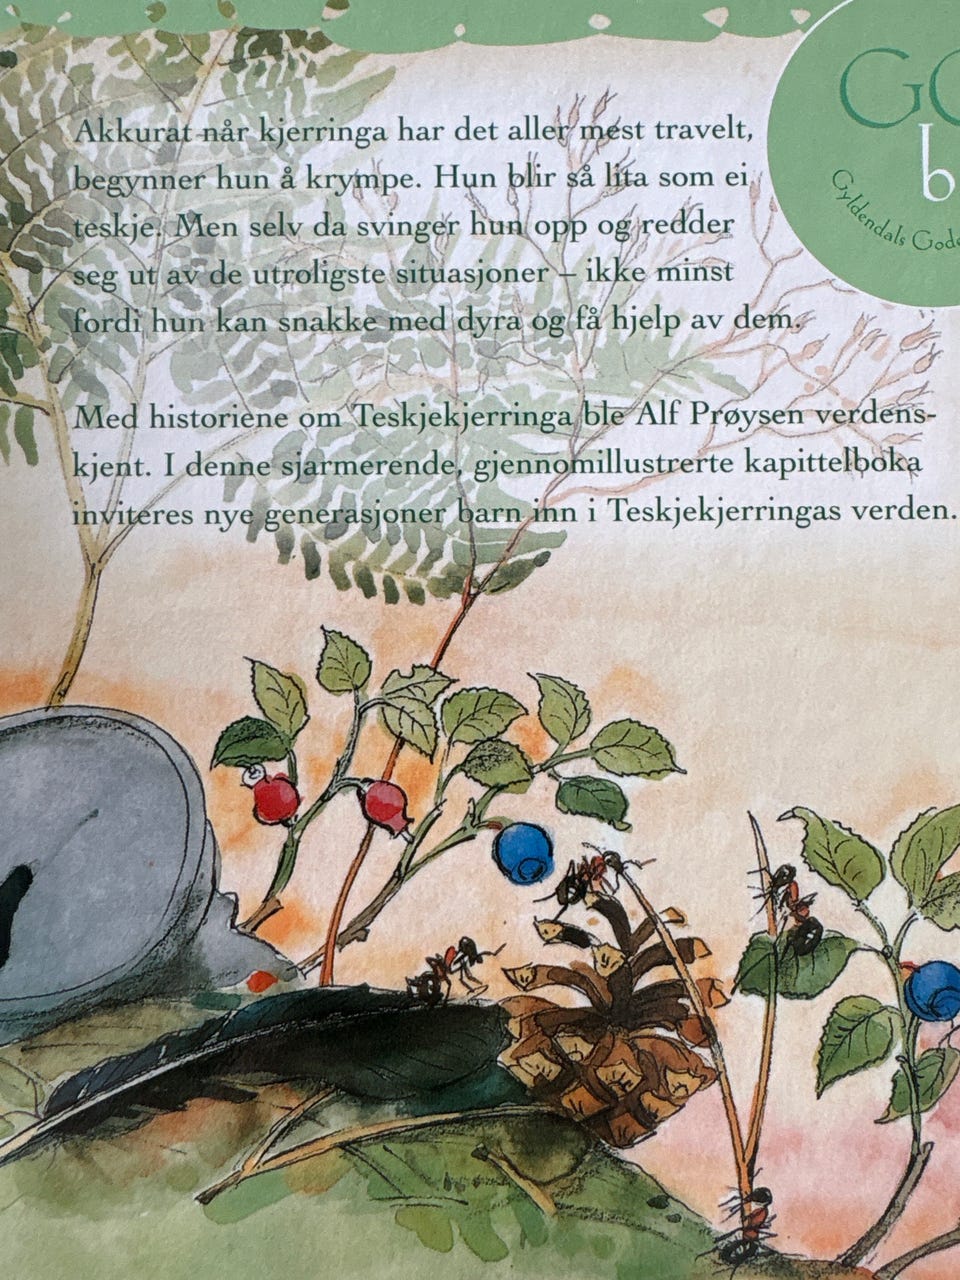 Akkurat når kjerringa har det aller mest travelt,
begynner hun å krympe. Hun blir så lita som ei
teskje. Men selv da svinger hun opp og redder
seg ut av de utroligste situasjoner – ikke minst
fordi hun kan snakke med dyra og få hjelp av dem.
Med historiene om Teskjekjerringa ble Alf Prøysen verdens-
kjent. I denne sjarmerende, gjennomillustrerte kapittelboka
inviteres nye generasjoner barn inn i Teskjekjerringas verden.
GO
b
Gyldendals Gode